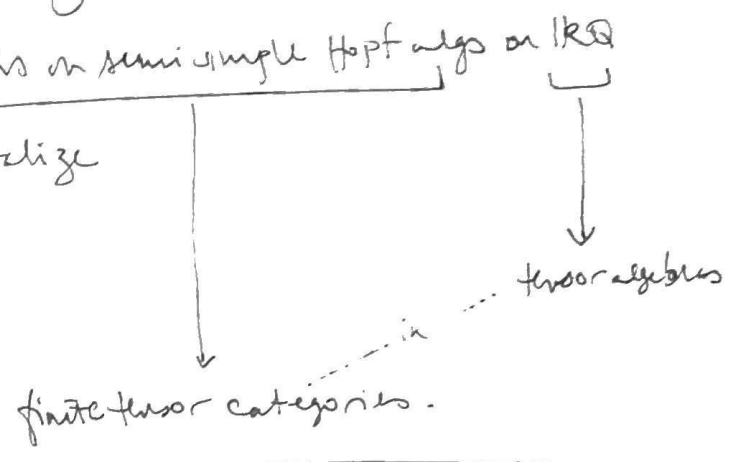 on semisimple Hopf algs on kQ
alize
tensor algebras
in
finite tensor categories.